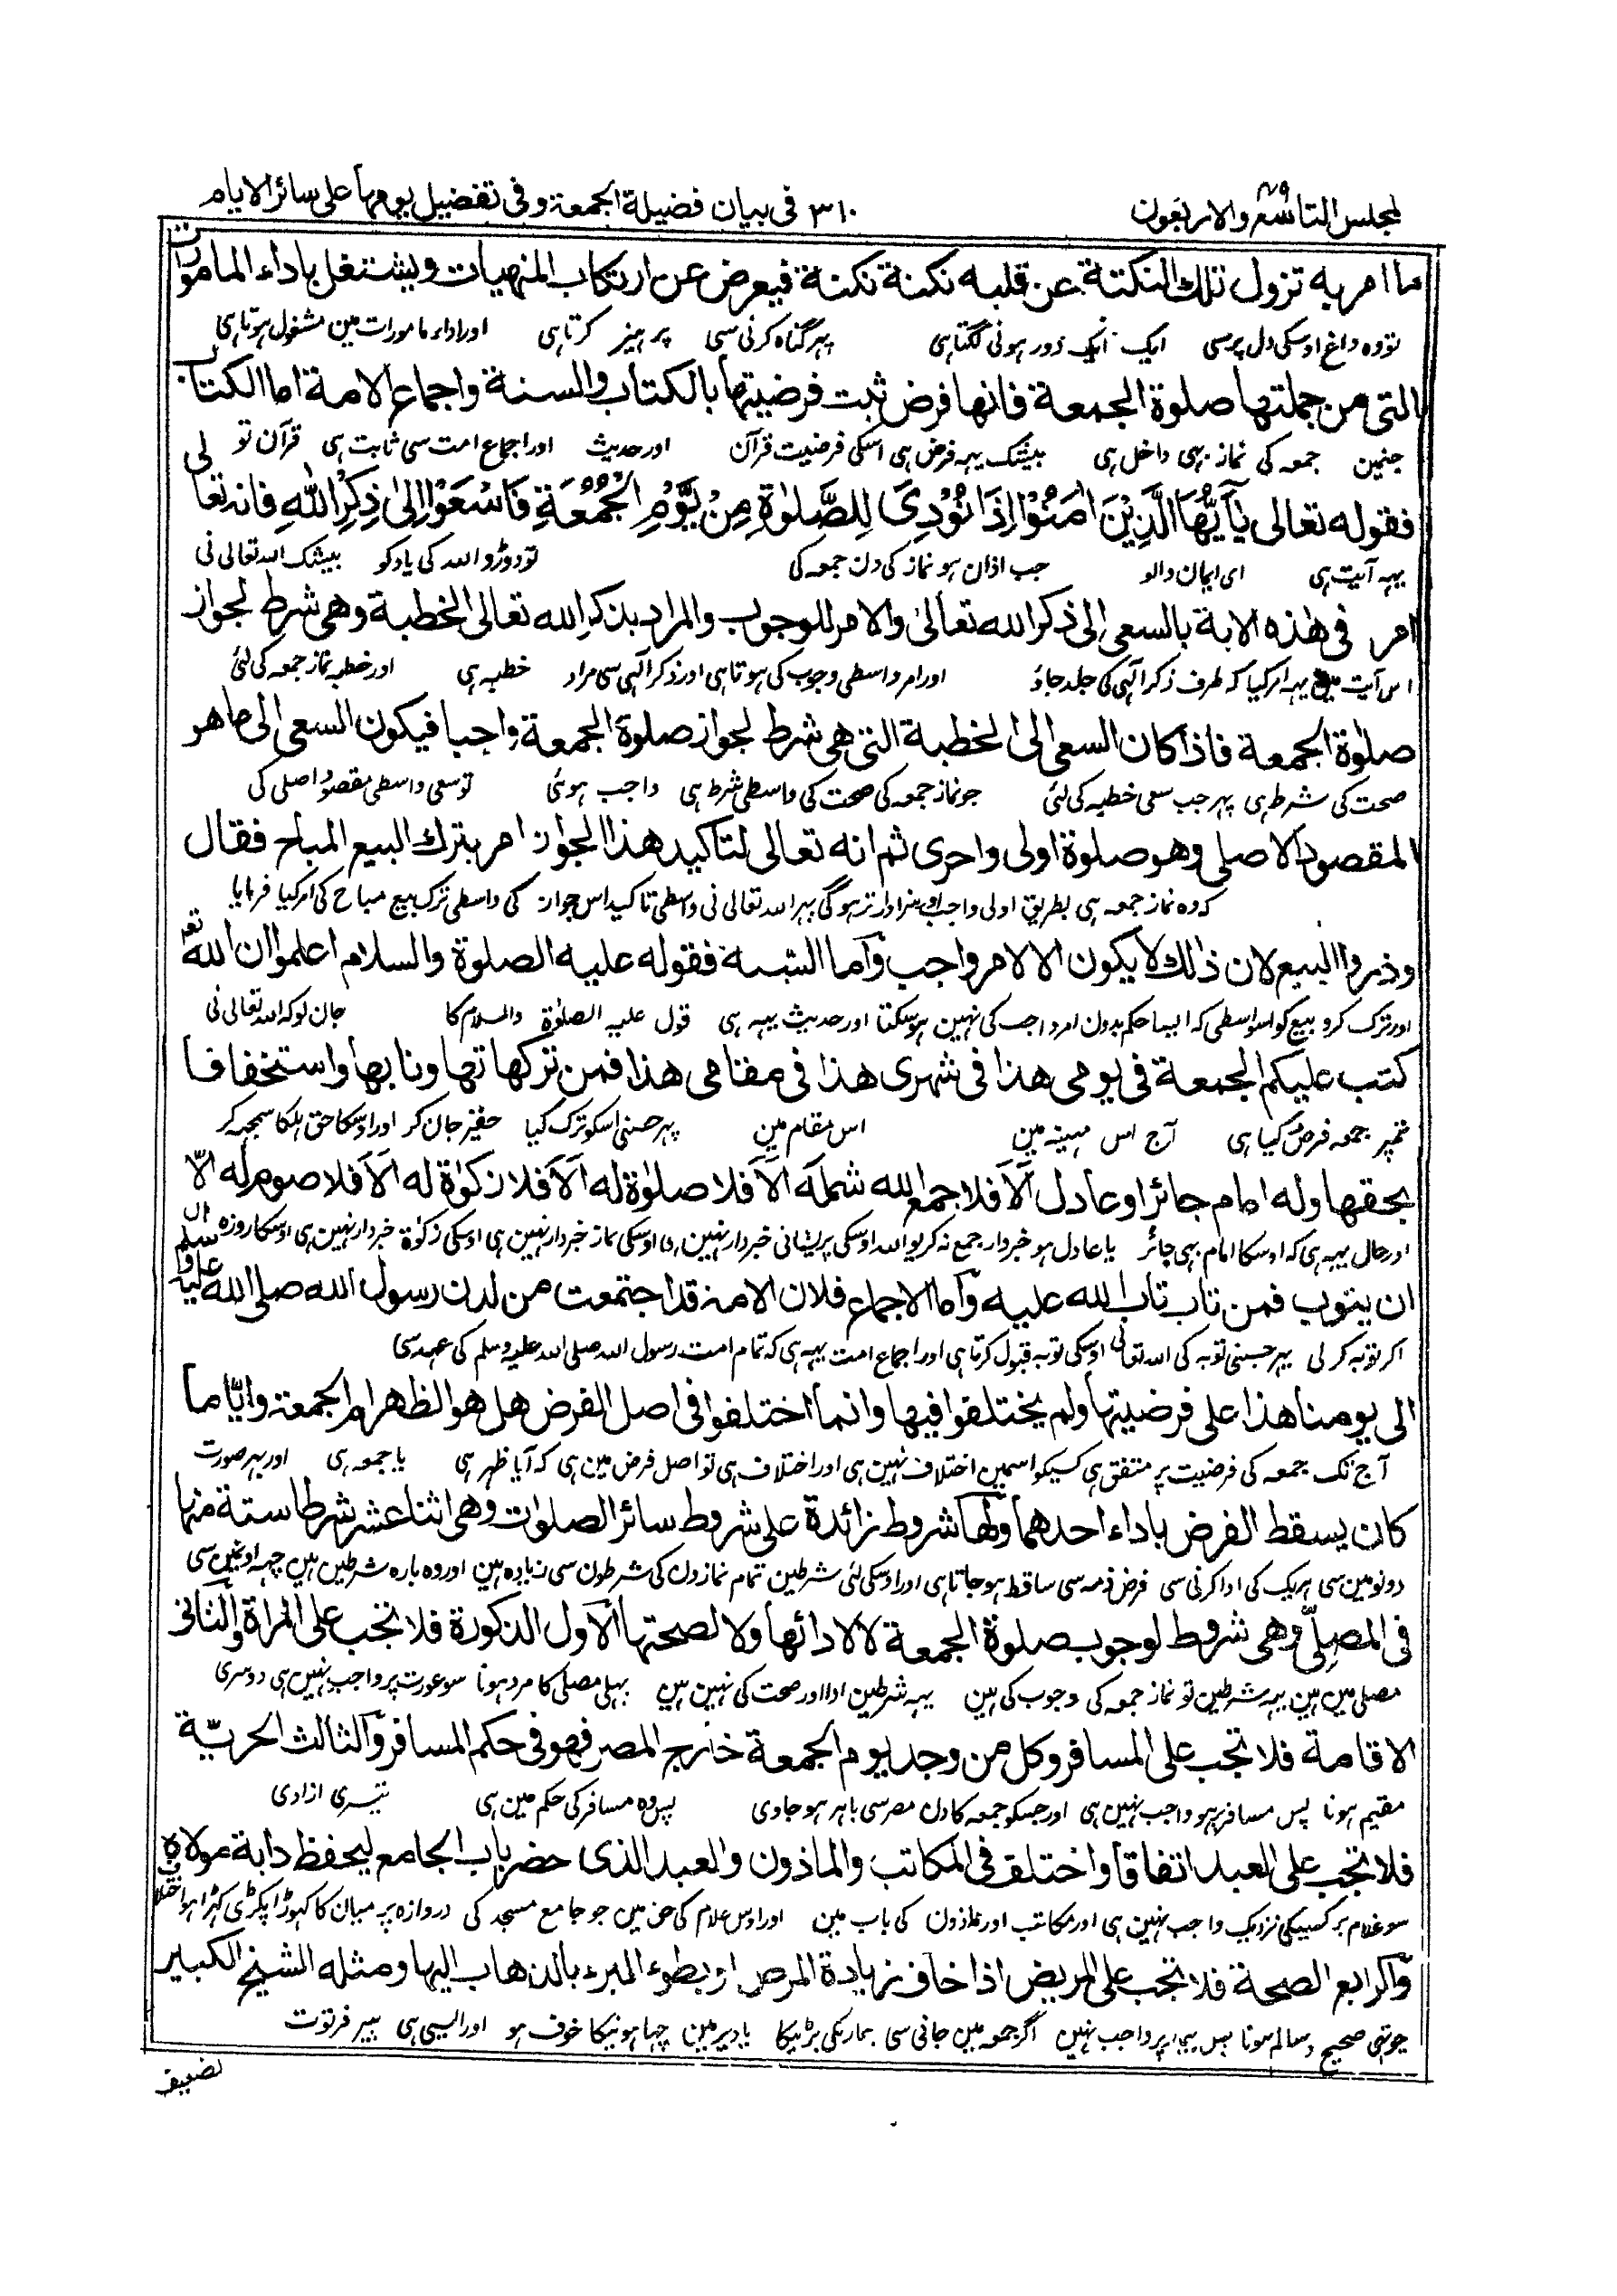 لمجلس التاسع والاربعون ۴۹ ٣١٠ فى بيان فضيلة الجمعة وفى تفضيل يومها على سائر الايام
ما امر به تزول تلك النكتة عن قلبه نكتة نكتة فيعرض عن ارتكاب المنهيات ويشتغل باداء المامورات
تو وه داغ اوسكى دل پر سى ایک ایک دور ہونی لگتا ہی پہر گناہ کرنی سی پرہیز کرتا ہی اور اداء مامورات مین مشغول ہوتا ہی
التى من جملتها صلوة الجمعة فانها فرض ثبت فرضيتها بالكتاب والسنة واجماع الامة اما الكتاب
جنمین جمعہ کی نماز بہی داخل ہی بیشک یہہ فرض ہی اسکی فرضیت قرآن اور حدیث اور اجماع امت سی ثابت ہی قرآن تو
فقوله تعالى يٰٓاَيُّهَا الَّذِيْنَ اٰمَنُوْا اِذَا نُوْدِىَ لِلصَّلٰوةِ مِنْ يَّوْمِ الْجُمُعَةِ فَاسْعَوْا اِلٰى ذِكْرِ اللّٰهِ فانه تعالى
یہہ آیت ہی ای ایمان والو جب اذان ہو نماز کی دن جمعہ کی تو دوڑو اللہ کی یاد کو بیشک اللہ تعالی نی
امر فى هٰذه الاية بالسعى الى ذكر الله تعالىٰ والامر للوجوب والمراد بذكر الله تعالى الخطبة وهى شرط لجواز
اس آیت مین یہہ امر کیا کہ طرف ذکر آلہی کی جلد جاؤ اور امر واسطی وجوب کی ہوتا ہی اور ذکر آلہی سی مراد خطبہ ہی اور خطبہ نماز جمعہ کی لئی
صلوٰة الجمعة فاذا كان السعى الى الخطبة التى هى شرط لجواز صلوة الجمعة واجبا فيكون السعى الى ما هو
صحت کی شرط ہی پہر جب سعی خطبہ کی لئی جو نماز جمعہ کی صحت کی واسطی شرط ہی واجب ہوئی تو سعی واسطی مقصود اصلی کی
المقصود الاصلى وهو صلوة اولى واحرى ثم انه تعالى لتاكيد هذا الجواز امر بترك البيع المباح فقال
کہ وہ نماز جمعہ ہی بطریق اولی واجب اور سزاوار تر ہوگی پہر اللہ تعالی نی واسطی تاکید اس جواز کی واسطی ترک بیع مباح کی امر کیا فرمایا
وذروا البيع لان ذالك لا يكون الا لامر واجب واما السنة فقوله عليه الصلوة والسلام اعلموا ان الله تعـ
اور ترک کرو بیع کو اسواسطی کہ ایسا حکم بدون امر واجب کی نہین ہوسکتا اور حدیث یہہ ہی قول علیہ الصلوٰة والسلام کا جان لو کہ اللہ تعالی نی
كتب عليكم الجمعة فى يومى هذا فى شهرى هذا فى مقامى هذا فمن تركها تهاونا بها واستخفافا
تمپر جمعہ فرض کیا ہی آج اس مہینہ مین اس مقام مین پہر جسنی اسکو ترک کیا حقیر جان کر اور اوسکا حق ہلکا سمجہہ کر
بحقها وله امام جائر او عادل اَلَا فلا جمع الله شمله اَلَا فلا صلوٰة له اَلَا فلا زكوٰة له اَلَا فلا صوم له الّا
اور حال یہہ ہی کہ اوسکا امام بہی جائر یا عادل ہو خبردار جمع نہ کریو اللہ اوسکی پریشانی خبردار نہین ہی اوسکی نماز خبردار نہین ہی اوسکی زکوٰة خبردار نہین ہی اوسکا روزہ
ان يتوب فمن تاب تاب الله عليه واما الاجماع فلان الامة قد اجتمعت من لدن رسول الله صلى الله عليه وسلم
اگر توبہ کر لی پہر جسنی توبہ کی اللہ تعالی اوسکی توبہ قبول کرتا ہی اور اجماع امت یہہ ہی کہ تمام امت رسول اللہ صلی اللہ علیہ وسلم کی عہد سی
الى يومنا هذا على فرضيتها ولم يختلفوا فيها وانما اختلفوا فى اصل الفرض هل هو الظهر ام الجمعة وايّا ما
آج تک جمعہ کی فرضیت پر متفق ہی کسیکو اسمین اختلاف نہین ہی اور اختلاف ہی تو اصل فرض مین ہی کہ آیا ظہر ہی یا جمعہ ہی اور بہر صورت
كان يسقط الفرض باداء احدهما ولها شروط زائدة على شروط سائر الصلوات وهى اثنا عشر شرطا ستة منها
دونو مین سی ہریک کی ادا کرنی سی فرض ذمہ سی ساقط ہو جاتا ہی اور اوسکی لئی شرطین تمام نمازون کی شرطون سی زیادہ ہین اور وہ بارہ شرطین ہین چہہ اونمین سی
فى المصلِّى وهى شروط لوجوب صلوة الجمعة لا لادائها ولا لصحتها الاول الذكورة فلا تجب على المراة والثانى
مصلی مین ہین یہہ شرطین تو نماز جمعہ کی وجوب کی ہین یہہ شرطین ادا اور صحت کی نہین ہین پہلی مصلی کا مرد ہونا سو عورت پر واجب نہین ہی دوسری
الاقامة فلا تجب على المسافر وكل من وجد يوم الجمعة خارج المصر فهو فى حكم المسافر والثالث الحريّة
مقیم ہونا پس مسافر پر واجب نہین ہی اور جسکو جمعہ کا دن مصر سی باہر ہو جاوی پس وہ مسافر کی حکم مین ہی تیسری ازادی
فلا تجب على العبد اتفاقا واختلف فى المكاتب والماذون والعبد الذى حضر باب الجامع ليحفظ دابة مولاه
سو غلام پر کسیکی نزدیک واجب نہین ہی اور مکاتب اور ماذون کی باب مین اور اوس غلام کی حق مین جو جامع مسجد کی دروازہ پر میان کا گہوڑا پکڑی کہڑا ہو اختلاف
والرابع الصحة فلا تجب على المريض اذا خاف زيادة المرض او بطوء البرء بالذهاب اليها ومثله الشيخ الكبير
چوتہی صحیح وسالم ہونا پس بیمار پر واجب نہین اگر جمعہ مین جانی سی بیماریکی بڑنیکا یا دیر مین چہا ہونیکا خوف ہو اور ایسی ہی پیر فرتوت
لضعيف